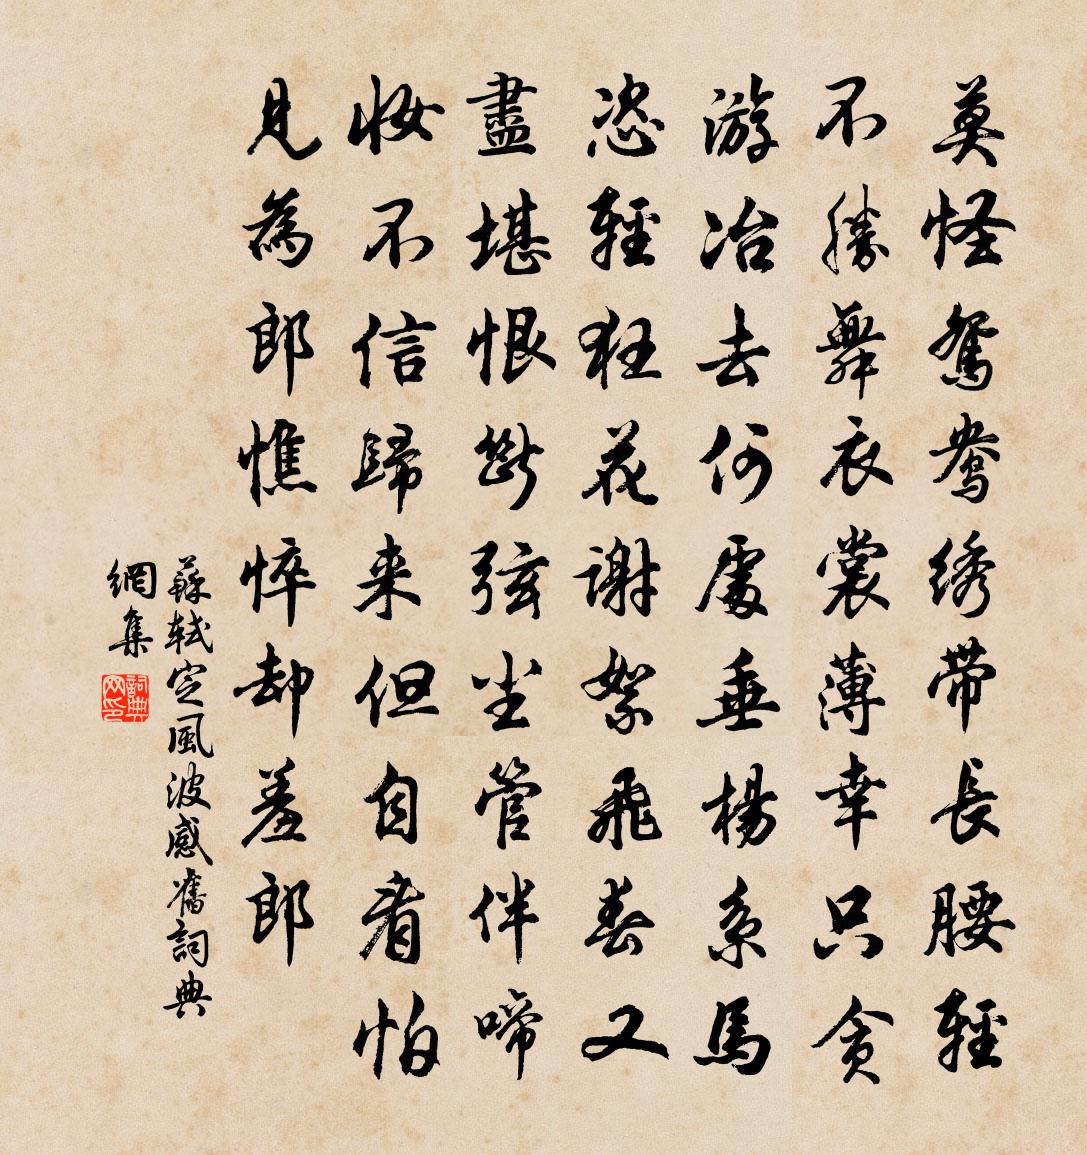 莫怪鴛鴦绣帶長腰輕
不勝舞衣裳薄幸只貪
游冶去何處垂楊系馬
恣輕狂花謝絮飛春又
盡堪恨斷弦尘管伴啼
妝不信歸来但自看怕
見為郎憔悴却羞郎
蘇軾定風波感舊詞典
網集
詞典网印